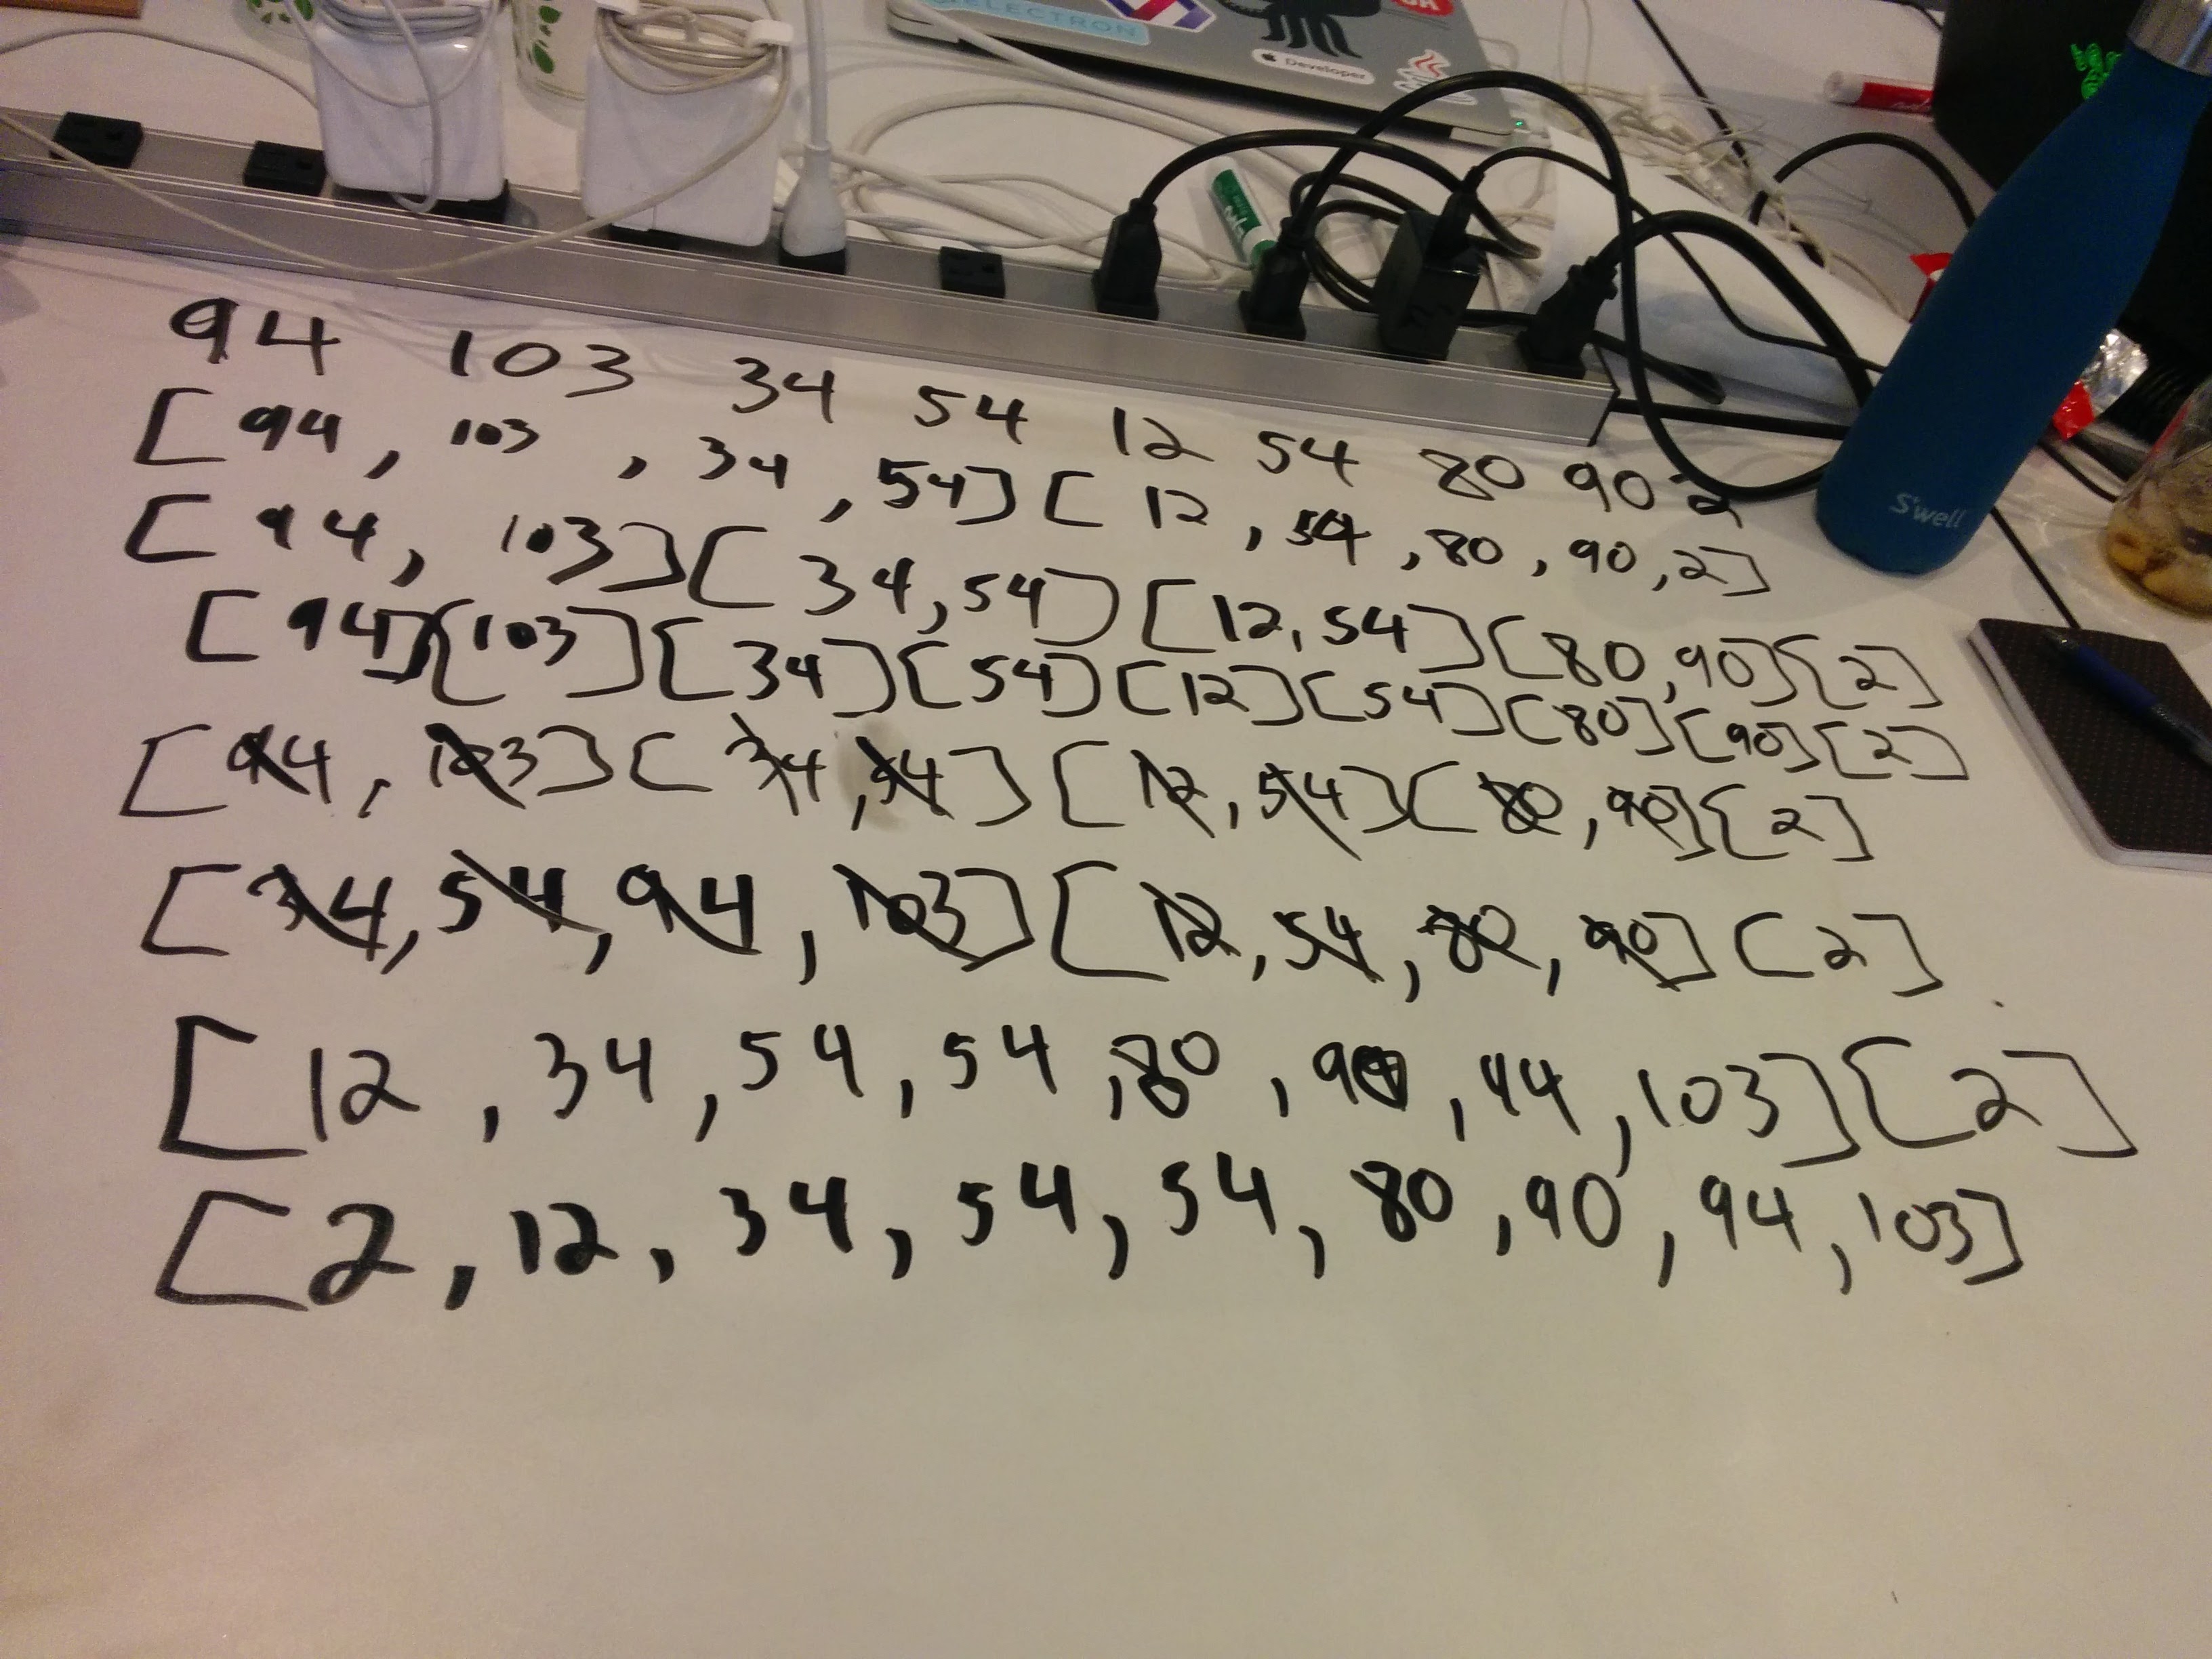 ELECTRON
Developer
94 103 34 54 12 54 80 90 2
[94, 103, 34, 54][12, 54, 80, 90, 2]
[94, 103][34, 54][12, 54][80, 90][2]
[94][103][34][54][12][54][80][90][2]
[94, 103][34, 54][12, 54][80, 90][2]
[34, 54, 94, 103][12, 54, 80, 90][2]
[12, 34, 54, 54, 80, 90, 94, 103][2]
[2, 12, 34, 54, 54, 80, 90, 94, 103]
S'well